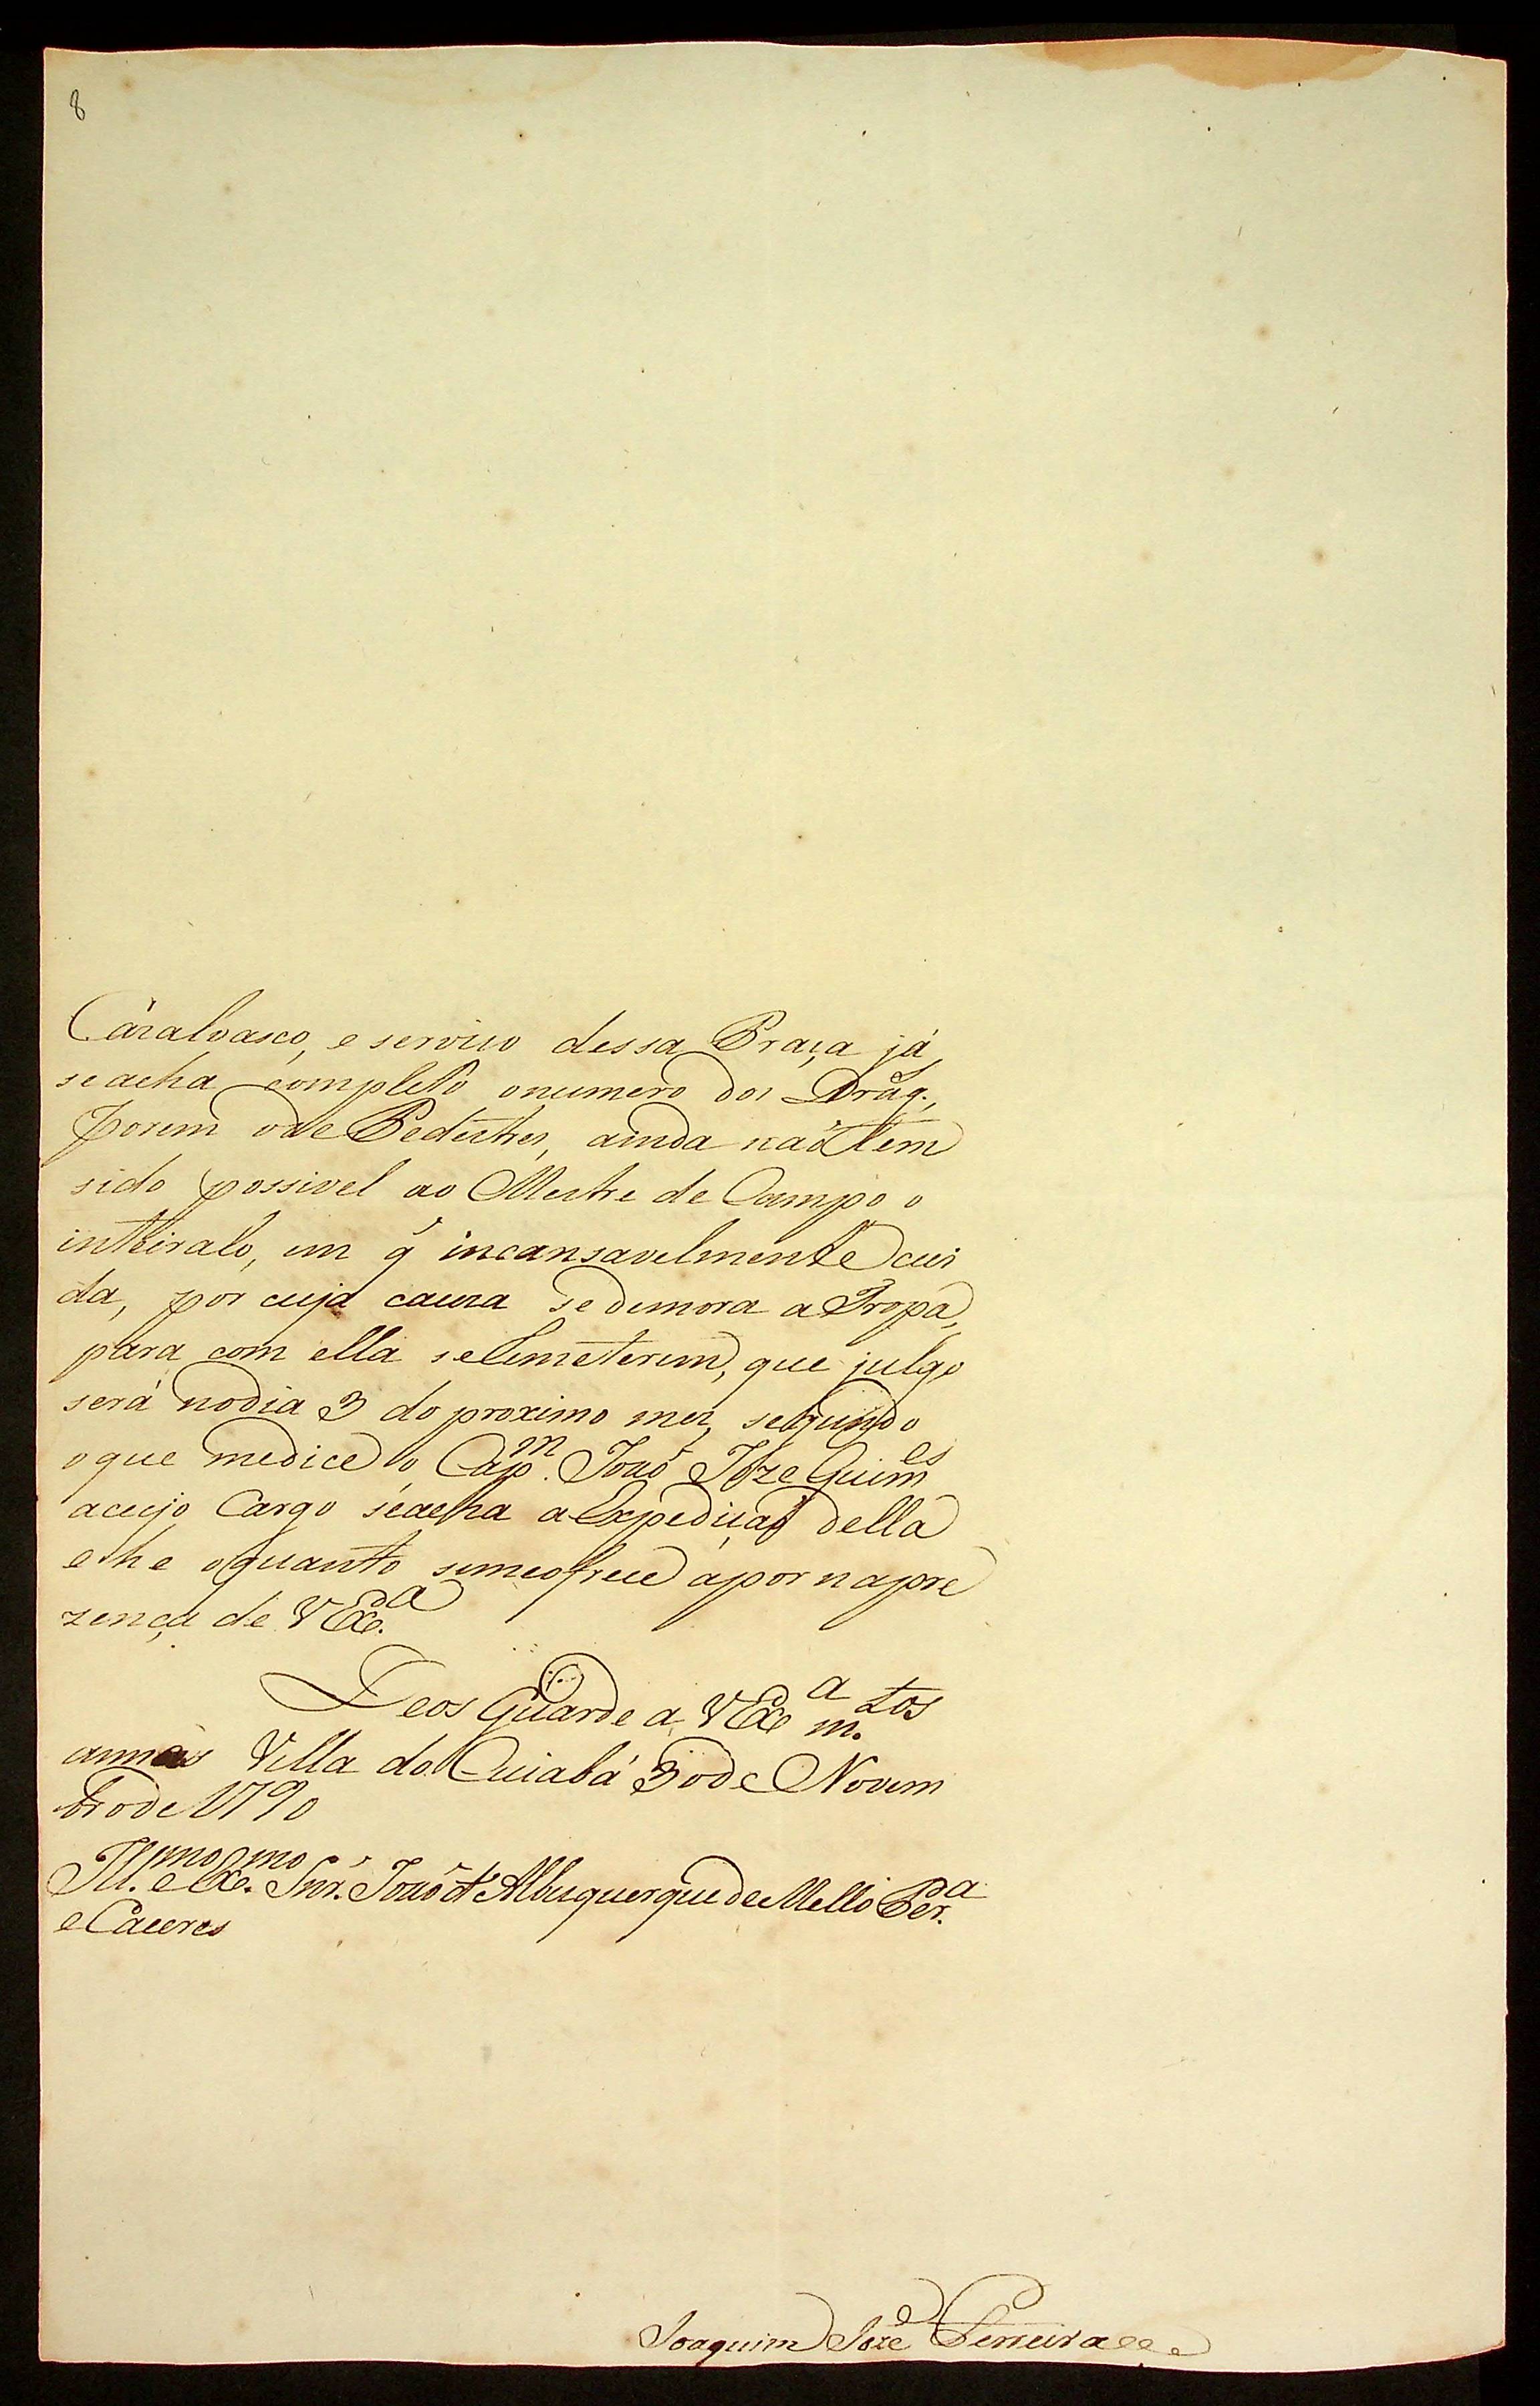 8
Cazalvasco, e serviço dessa Praça já
seacha completo onumero dos Drag.ˢ,
porem ode Pedestres, ainda naõ tem
sido possivel ao Mestre de Campo o
inteiralo, em q̃ incansavelmente cui
da, por cuja cauza sedemora a Tropa,
para com ella se remeterem, que julgo
será nodia 3 do proximo mez, segundo
oque medice o Cap.ᵐ Joaõ Joze Guim.ᵉˢ
acujo Cargo seacha a Expediçaõ della
ehe oquanto semeofrece àpor napre
zença de V Ex.ᵃ
Deos Guarde a V Ex.ᵃ m.ᵗᵒˢ
annos Villa do Cuiabá 30 de Novem
bro de 1790
Ill.ᵐᵒ e Ex.ᵐᵒ Snr. Joaõ d'Albuquerque de Mello Per.ᵃ
e Caceres
Joaquim Joze Ferreira